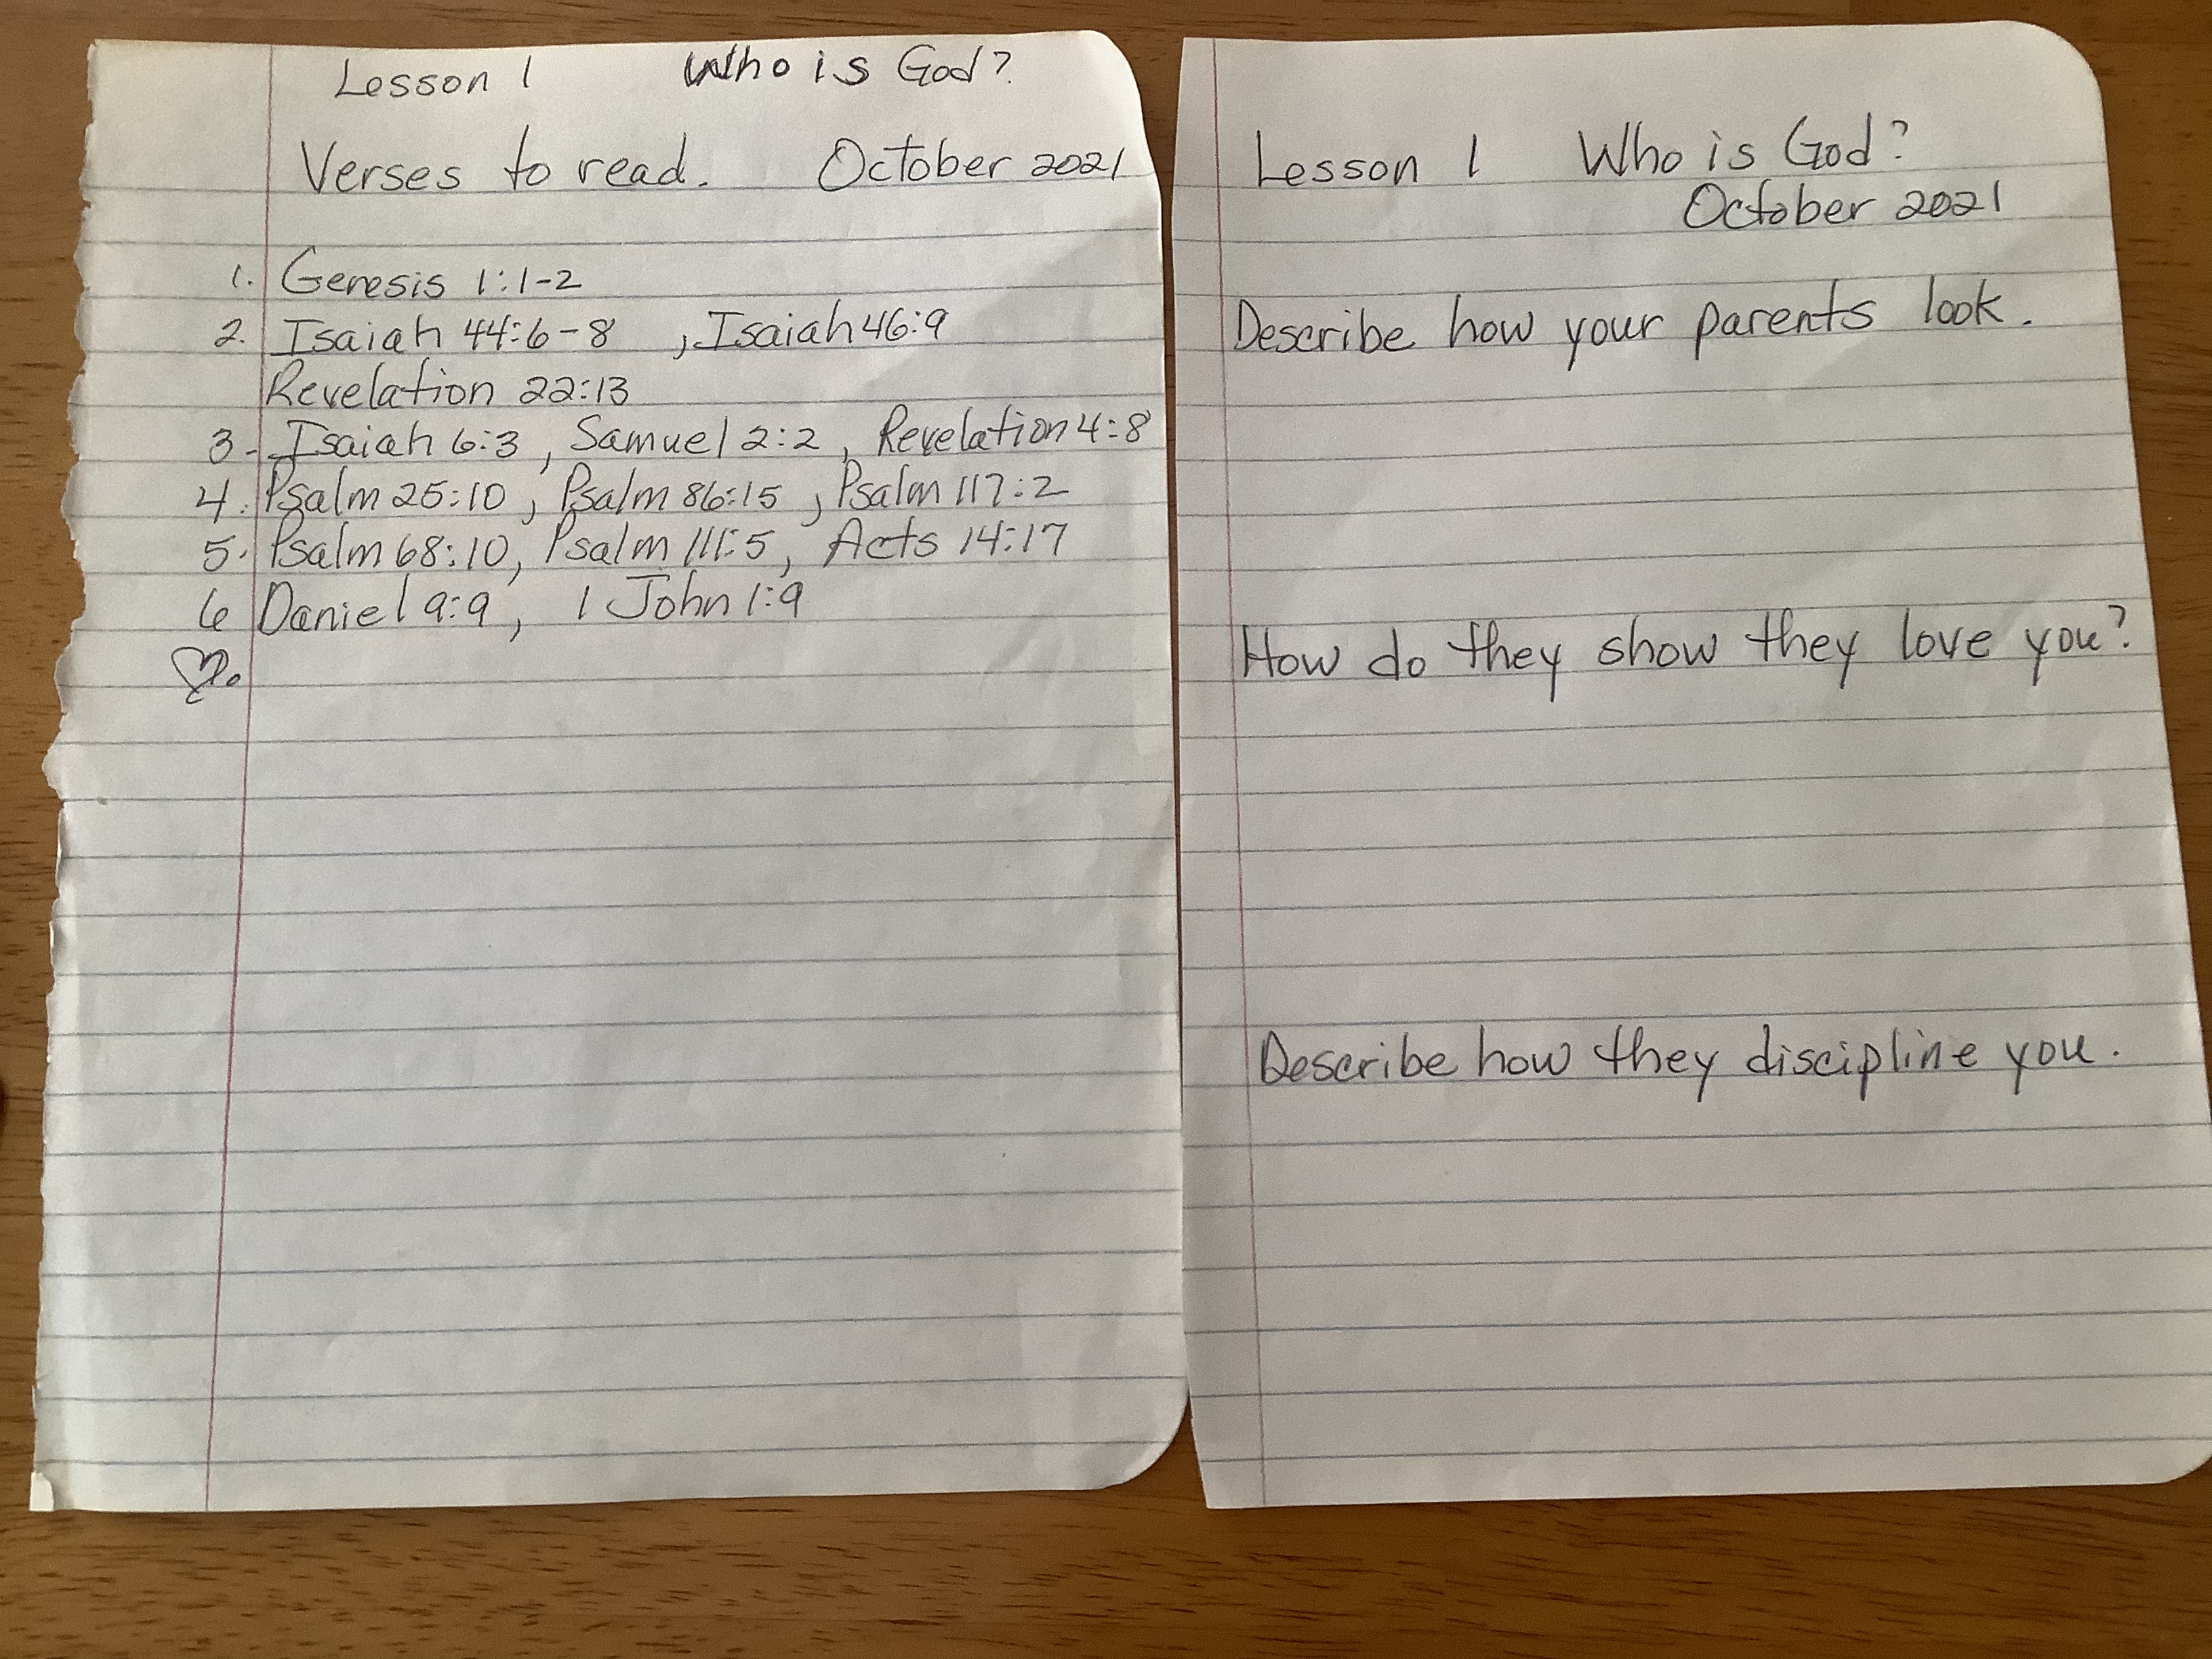 Lesson 1 Who is God?
Verses to read. October 2021
1. Genesis 1:1-2
2. Isaiah 44:6-8 , Isaiah 46:9
Revelation 22:13
3- Isaiah 6:3 , Samuel 2:2 , Revelation 4:8
4. Psalm 25:10 , Psalm 86:15 , Psalm 117:2
5. Psalm 68:10, Psalm 111:5, Acts 14:17
6 Daniel 9:9, 1 John 1:9
Lesson 1 Who is God?
October 2021
Describe how your parents look.
How do they show they love you?
Describe how they discipline you.